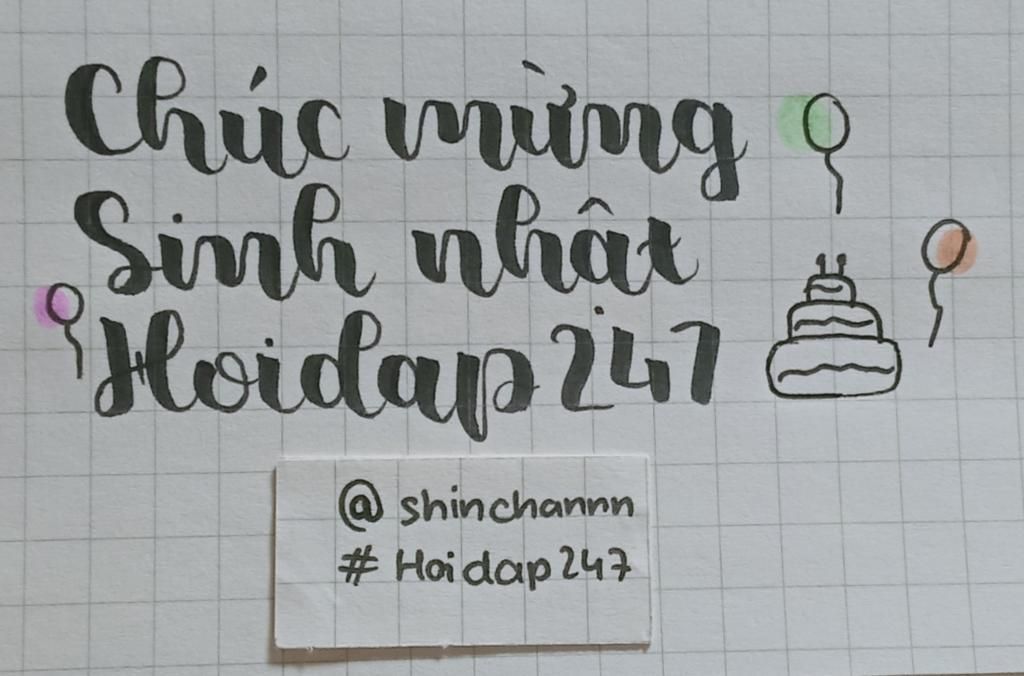 Chúc mừng
Sinh nhật
Hoidap 247
@ shinchannn
# Hoidap 247